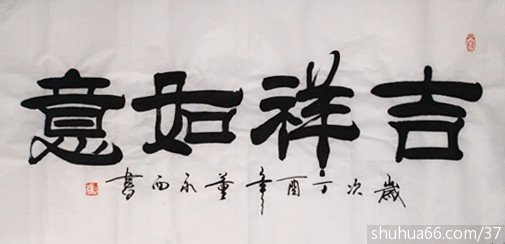 吉祥如意
歲次丁酉年董永西書
shuhua66.com/37